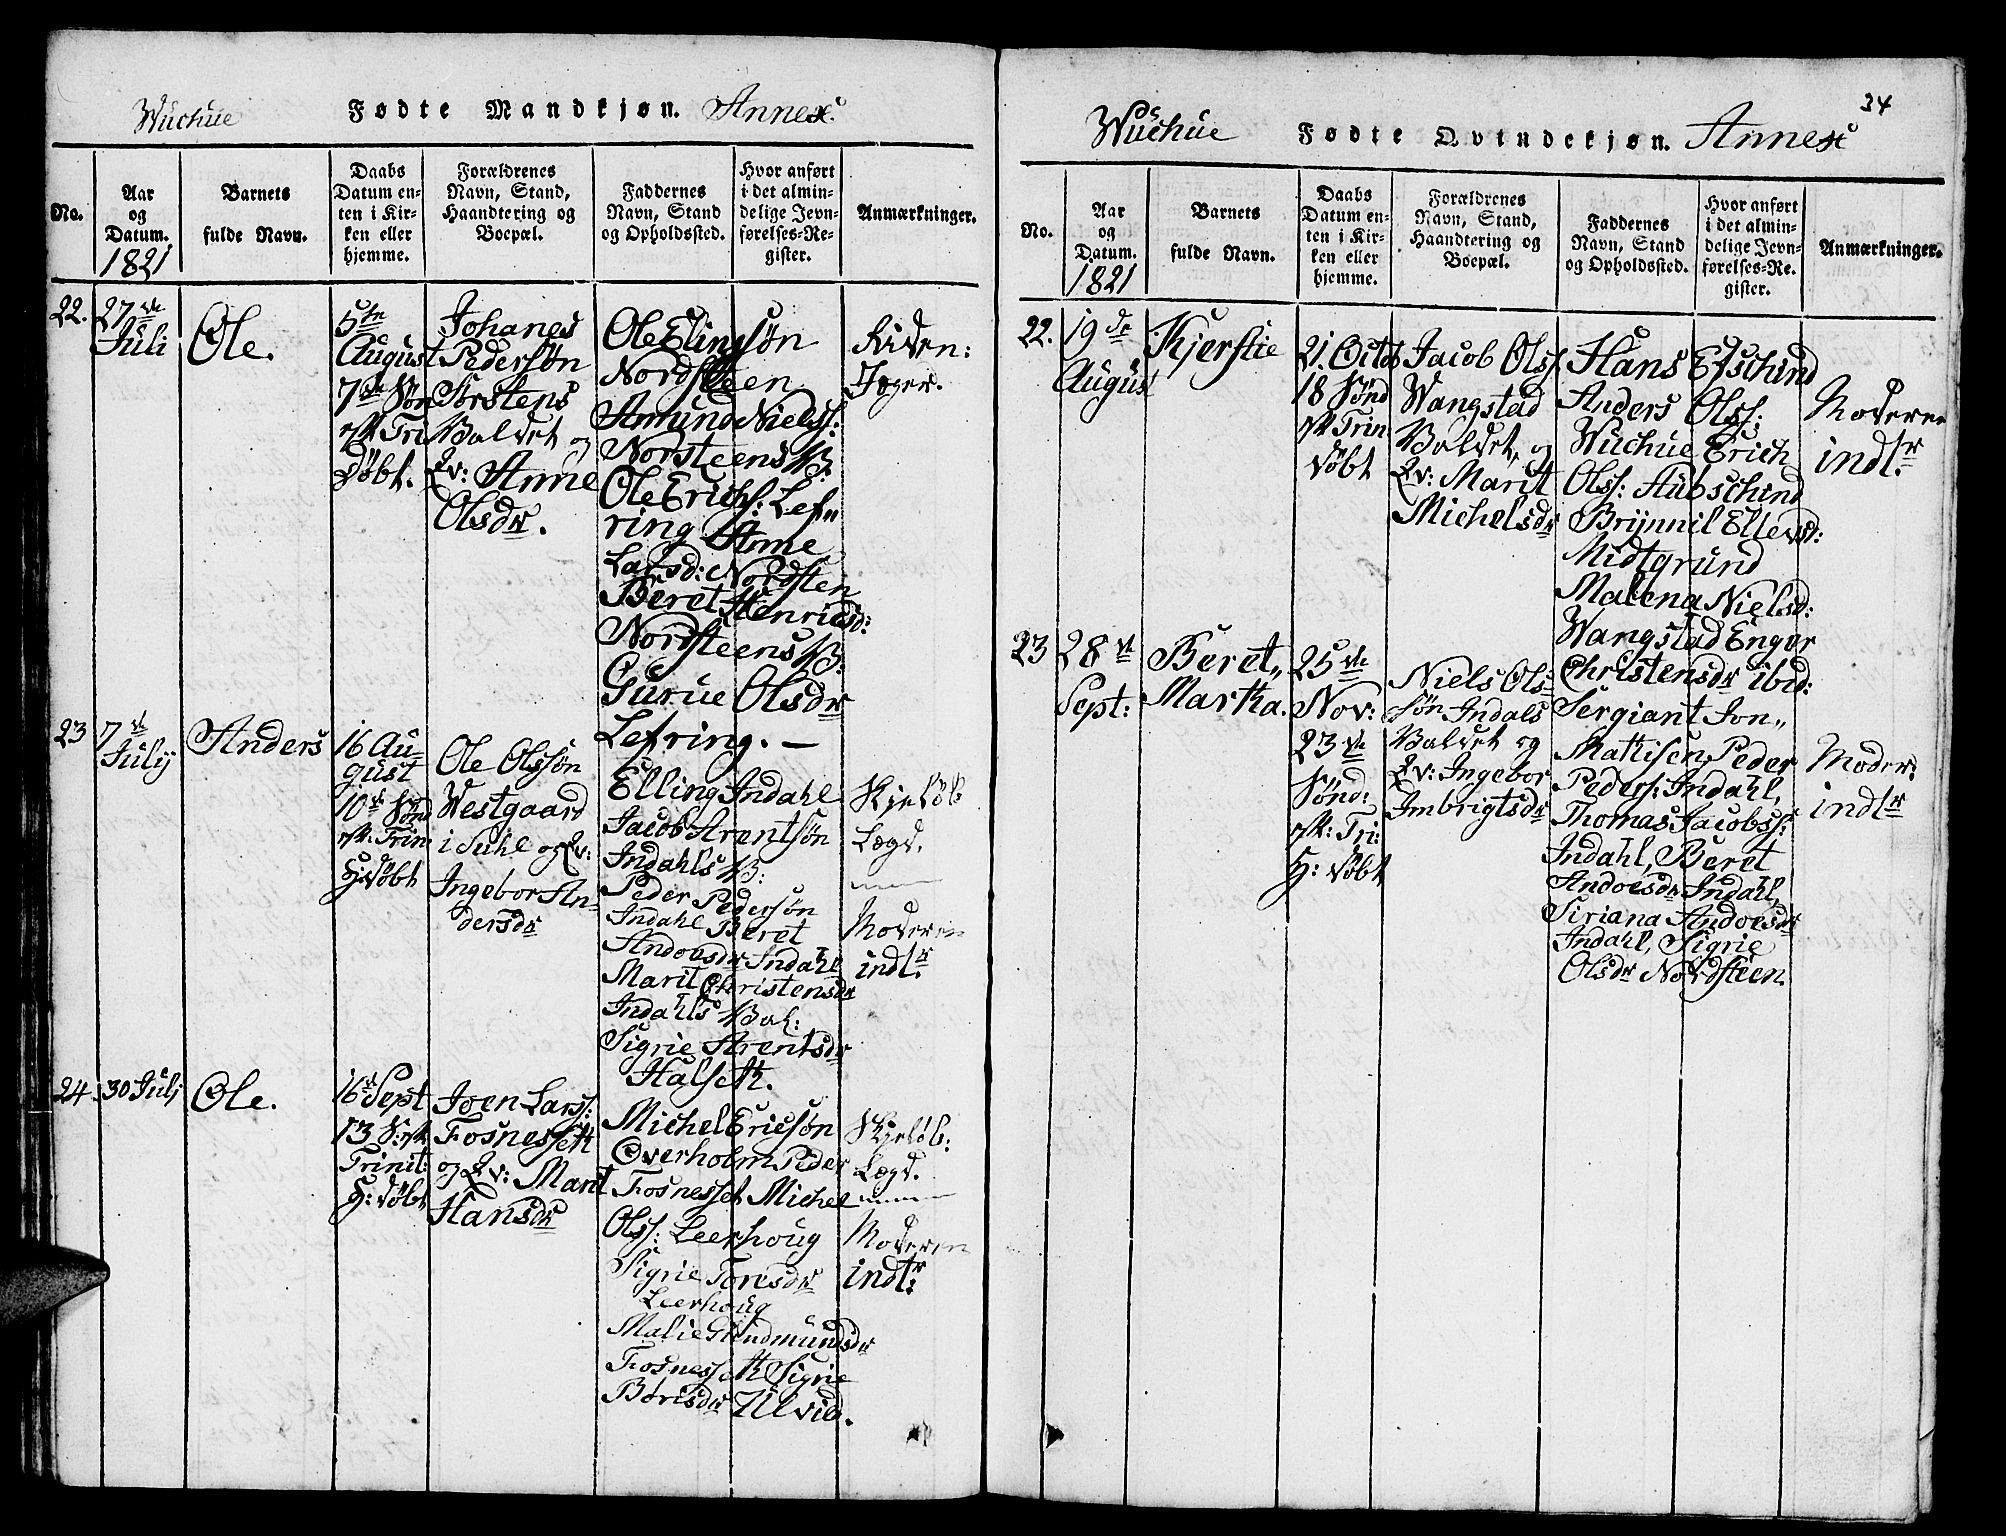 Wuchue Fødte Mandkjøn. Annex
No.
Aar
og
Datum.
1821
Barnets
fulde Navn.
Daabs
Datum en-
ten i Kir-
ken eller
hjemme.
Forældrenes
Navn, Stand,
Haandtering og
Boepæl.
Faddernes
Navn, Stand
og Opholdssted.
Hvor anført
i det almin-
delige Jevn-
førelses-Re-
gister.
Anmærkninger.
22.
27de
Juli
Ole.
5te
August
7de Søn
eft Tri
døbt.
Johanes
Pedersøn
Storstens
Valdet og
Qv: Anne
Olsdr.
Ole Elingsøn
Nordsteen
Amund Nielss:
Norsteens V:
Ole Erichs: Lef
ring Anne
Larsd: Nordsten
Beret Henricsd:
Nordsteens V:
Gurue Olsdr
Lefring. —
Jæger.
23
7de
Julij
Anders
16 Au-
gust
10de Sønd
eft: Trin
H: døbt
Ole Olssøn
Westgaard
i Suhl og Qv:
Ingebor An-
dersdr
Elling Indahl
Jacob Arentsøn
Indahls V:
Peder Pedersøn
Indahl Beret
Andoesdr Indahl
Marit Christensdr
Indahls Val:
Sigrie Arentsdr
Halseth.
Skjeløb
Lægd.
Moderen
indlr
24.
30 Julj
Ole.
16d Sept
13 S: eft
Trinit:
H: døbt
Joen Larss:
Fosnesseth
og Qv: Marit
Hansdr
Michel Ericsøn
Overholm Peder
Fosnesset Michel
Olss: Leerhoug
Sigrie Toresdr
Leerhoug
Malie Gundmundsdr
Fosnesseth Sigrie
Børisdr Ulvid.
Skjeløb:
Lægd.
Moderen
indlr:
34
Wuchue Fødte Qvindekjøn. Annex
No.
Aar
og
Datum.
1821
Barnets
fulde Navn.
Daabs
Datum en-
ten i Kir-
ken eller
hjemme.
Forældrenes
Navn, Stand,
Haandtering og
Boepæl.
Faddernes
Navn, Stand
og Opholdssted.
Hvor anført
i det almin-
delige Jevn-
førelses-Re-
gister.
Anmærkninger.
22.
19de
August
Kjerstie
21. Octob
18 Sønd
eft Trin
døbt
Jacob Olss:
Wangstad
Valdet, og
Qv: Marit
Michelsdr
Hans Efschind
Anders Olss:
Wuchue Erich
Olss: Aubschind
Brynnil Ellevs:
Midtgrund
Malena Nielsd:
Wangstad Engor
Christensdr ibid:
Moderen
indlr
23
28de
Sept:
Beret„
Martha.
25de
Nov:
23de
Sønd:
eft: Tri:
H: døbt
Niels Ols-
søn Indals
Valdet og
Qv: Ingebor
Imbrigtsdr
Sergiant Jon„
Mathisen, Peder
Peders: Indahl,
Thomas Jacobss:
Indahl, Beret
Andoesdr Indahl,
Siriana Andoesdr
Indahl, Sigrie
Olsdr Nordsteen.
Moder:
indlr